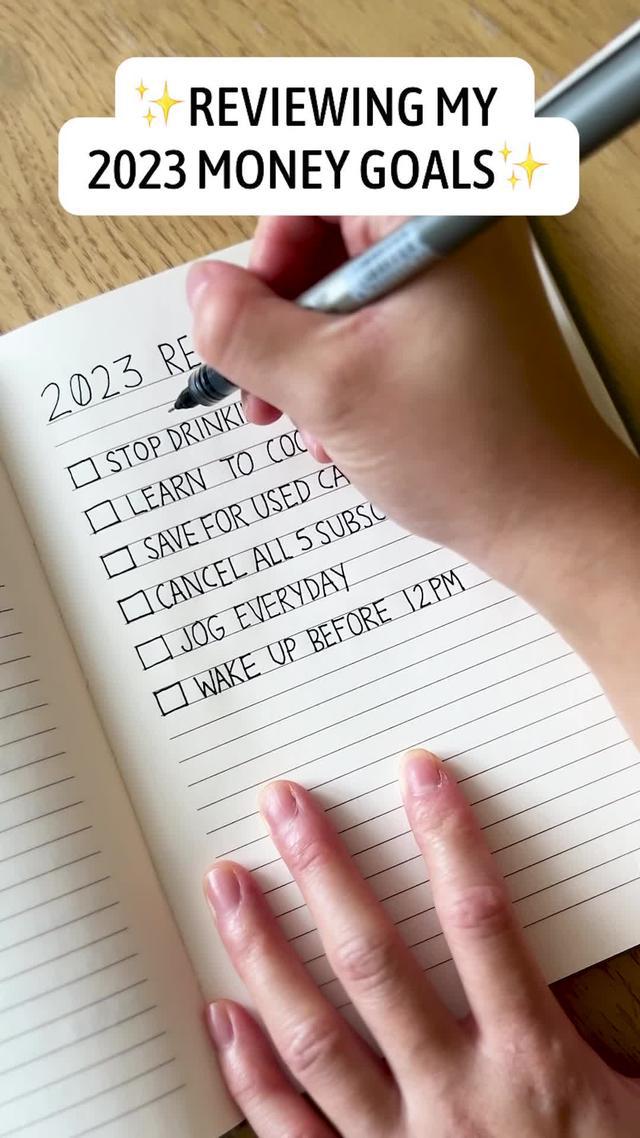 ✨REVIEWING MY
2023 MONEY GOALS✨
2023 RE
STOP DRINKI
LEARN TO COO
SAVE FOR USED CA
CANCEL ALL 5 SUBSC
JOG EVERYDAY
WAKE UP BEFORE 12PM